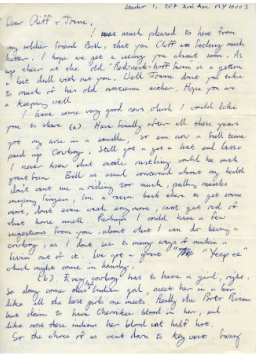 Dear Cliff + Joane,
I was much pleased to hear from
my soldier friend Bill, that you Cliff was feeling much
better. I hope we get a seeing you about soon. As
up there at the old
a bit dull with out you. Well Joane dont you take
to much of his old nonsense either. Hope you are
a keeping well.
I have some very good news which I would like
you to share (a) Have finally after all these years
got my arse in a saddle. So am now a full time
paid up Cowboy. Still got a get a hat and lasso
I never knew that cattle rustling could be such
great fun. Bill as usual concerned about my health
dont want me a riding too much,
fingers, I'm a
more, dont even wash any more, cant get rid of
that horse smell. Perhaps I could have a few
suggestions from you, about what I can do being a
cowboy, as I dont see to many ways of makin a
livin out of it. Ive got a great "Yeepee"
which might come in handy.
(b) Every cowboy has to have a girl, right.
So along come this Indian gal, meet her in a bar
like all the best gals one meets. Really she Porto Rican
but claim to have Cherokee blood in her, and
like most these indians her blood not half hot.
So the three of us went down to key west,